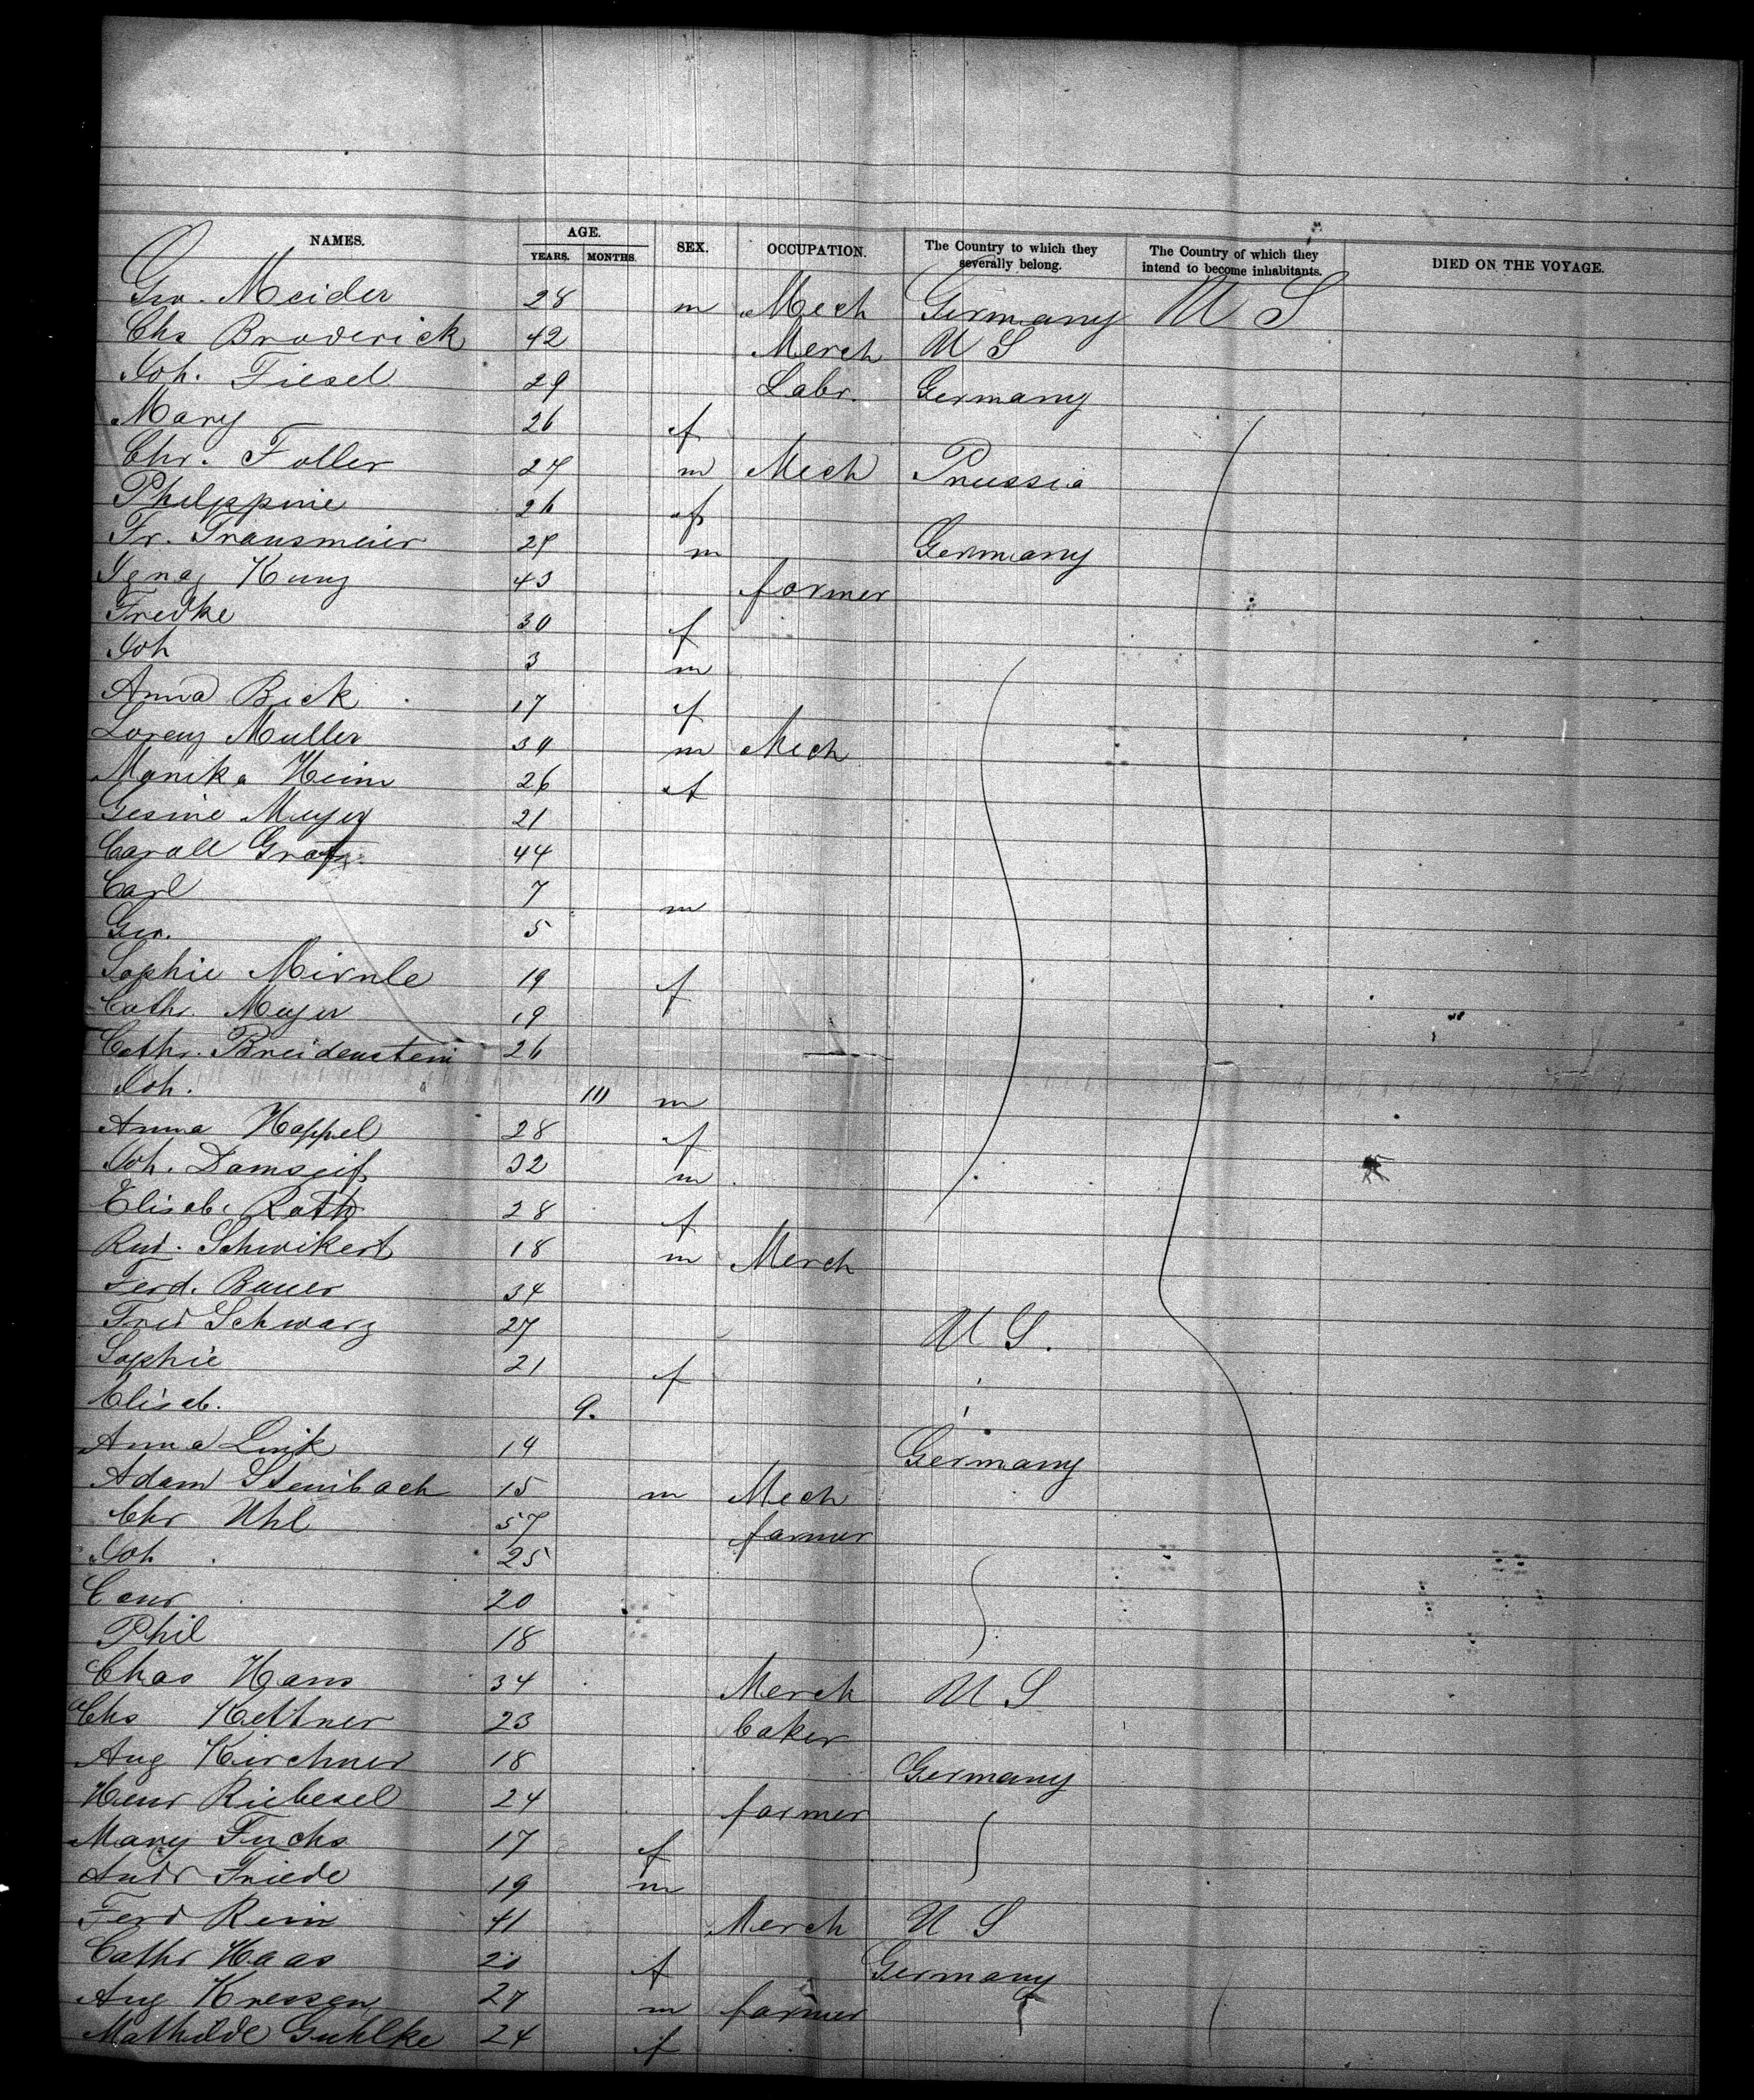 NAMES. AGE. SEX. OCCUPATION. The Country to which they severally belong. The Country of which they intend to become inhabitants. DIED ON THE VOYAGE.
YEARS. MONTHS.
Geo. Meider 28 m Mech Germany U S
Chs Broderick 42 Merch U S
Joh. Fiesel 29 Labr. Germany
Mary 26 f
Chr. Foller 27 m Mech Prussia
Philippine 26 f
Fr. Transmeier 29 m Germany
Ignaz Kunz 43 farmer
Fredke 30 f
Joh 3 m
Anna Bick 17 f
Lorenz Muller 34 m Mech
Monika Heim 26 f
Gesine Meyer 21
Caroll Graf 44
Carl 7 m
Geo. 5
Sophie Mirnle 19 f
Cathr. Meyer 19
Cathr. Breidenstein 26
Joh. m
Anna Happel 28 f
Joh. Damseif 32 m
Elisab. Roth 28 f
Rud. Schwikert 18 m Merch
Ferd. Bauer 34
Fred Schwarz 27 U S.
Sophie 21 f
Elisab. 9.
Anna Link 14 Germany
Adam Steinbach 15 m Mech
Chr Uhl 57 farmer
Joh 25
Conr 20
Phil 18
Chas Hans 34 Merch U S
Chs Kettner 23 baker
Aug Kirchner 18 Germany
Henr Riebesel 24 farmer
Mary Fuchs 17 f
Andr Friede 19 m
Ferd Rein 41 Merch U S
Cathr Haas 20 f Germany
Aug Kressen 27 m farmer
Mathilde Guhlke 24 f